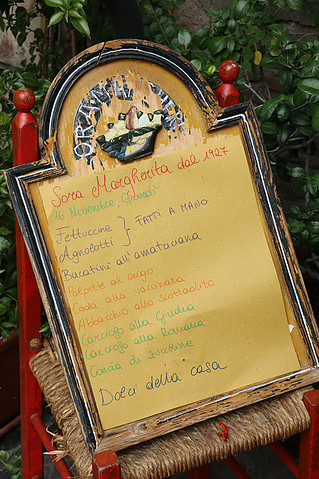 Sora Margherita dal 1927
16 Novembre, Giovedì
Fettuccine } FATTI A MANO
Agnolotti
Bucatini all'amatriciana
Polpette al sugo
Coda alla vaccinara
Abbacchio alla scottadito
Carciofo alla Giudia
Carciofo alla Romana
Concia di zucchine
Dolci della casa